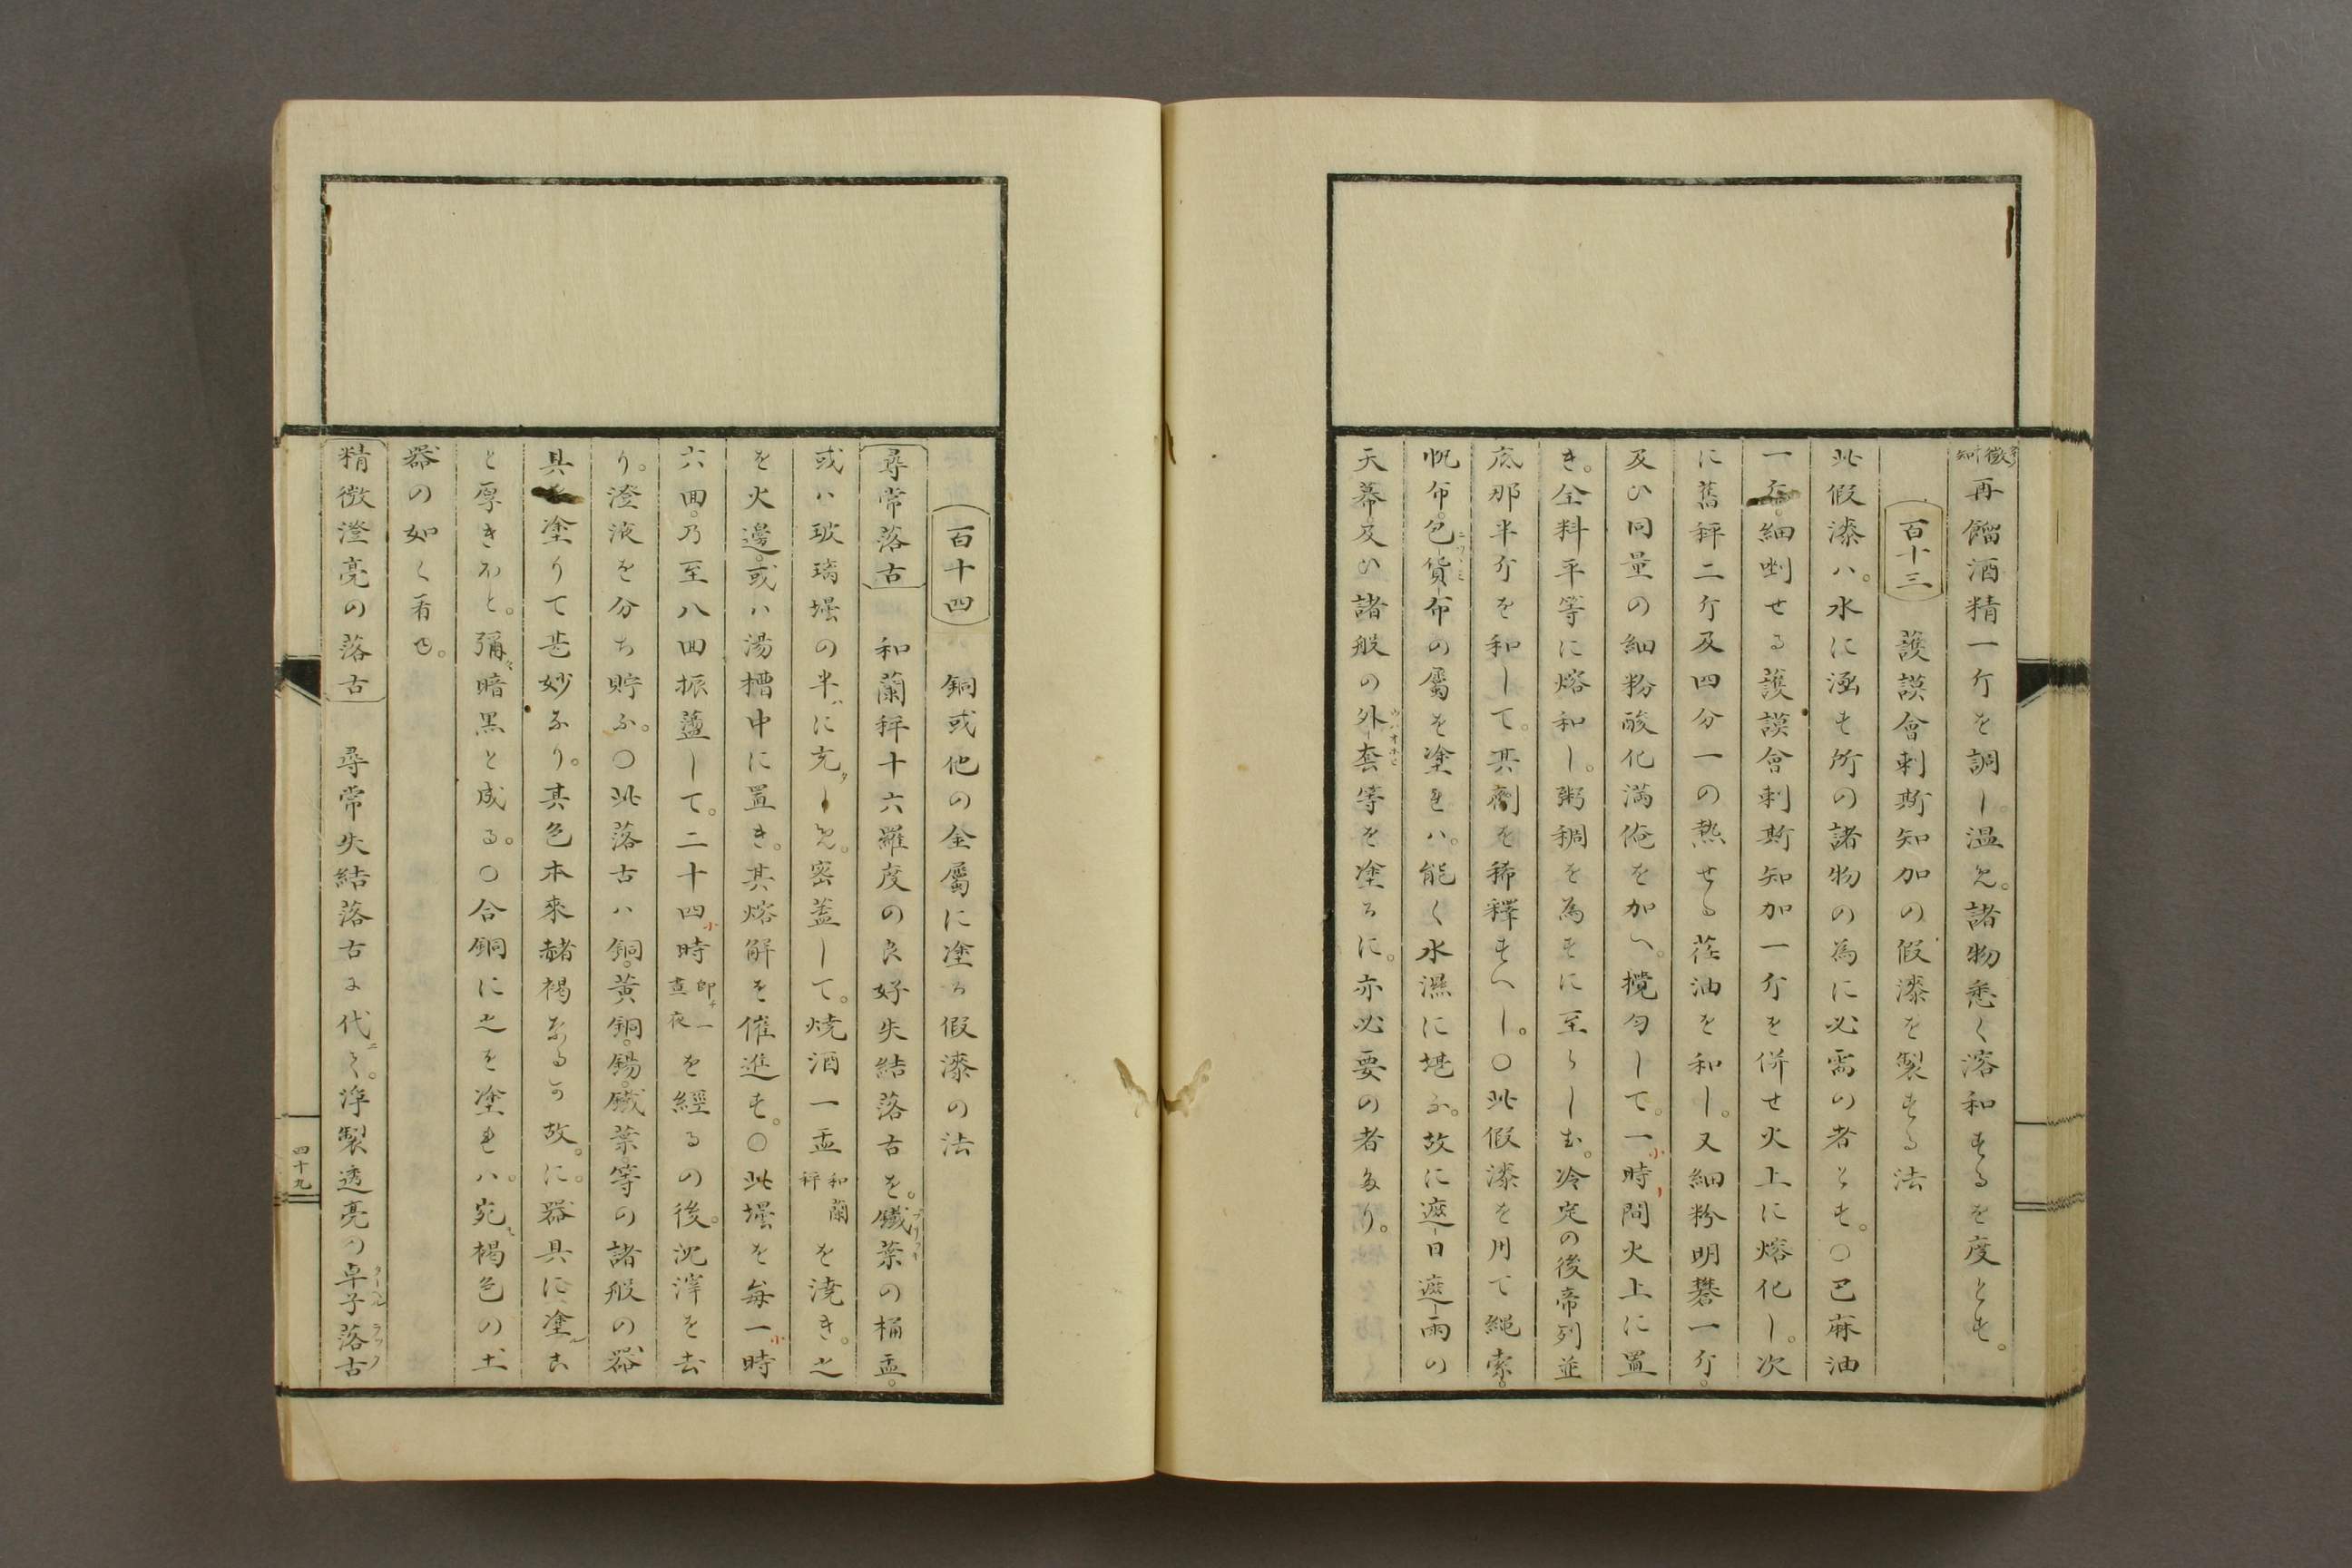 再餾酒精一斤を調し。温め。諸物悉く溶和するを度とす。
百十三　護謨會剌斯知加の假漆を製する法
此假漆ハ。水に浸す所の諸物の為に必需の者とす。〇巴麻油
一斤。細剉せる護謨會剌斯知加一斤を併せ火上に熔化し。次
に舊秤二斤及四分一の熱せる荏油を和し。又細粉明礬一斤。
及ひ同量の細粉酸化満俺を加へ。攪匀して。一小時間火上に置
き。全料平等に熔和し。粥稠を為すに至らしむ。冷定の後帝列並
底那半斤を和して。其劑を稀釋すへし。〇此假漆を用て繩索。
帆布。包貨布の屬を塗れハ。能く水濕に堪ふ。故に遮日遮雨の
天幕。及ひ諸般の外套等を塗るに。亦必要の者なり。
百十四　銅或他の金屬に塗る假漆の法
尋常落古　和蘭秤十六羅度の良好失結落古を。鐵葉の桶盂。
或ハ玻璃壜の半に充しめ。密葢して。焼酒一盂和蘭秤を澆き。之
を火邊。或ハ湯槽中に置き。其熔解を催進す。〇此壜を毎一小時
六回。乃至八回振盪して。二十四小時即チ一晝夜を經るの後。沈滓を去
り。澄液を分ち貯ふ。〇此落古ハ銅。黄銅。錫。鐵葉。等の諸般の器
具を塗りて甚妙なり。其色本來赭褐なるか故に。器具に塗ルこ
と厚きほと。彌々暗黒と成る。〇合銅に之を塗れハ。宛モ褐色の土
器の如く看ゆ。
精微澄亮の落古　尋常失結落古に代ニるに。淨製透亮の卓子落古
四十九